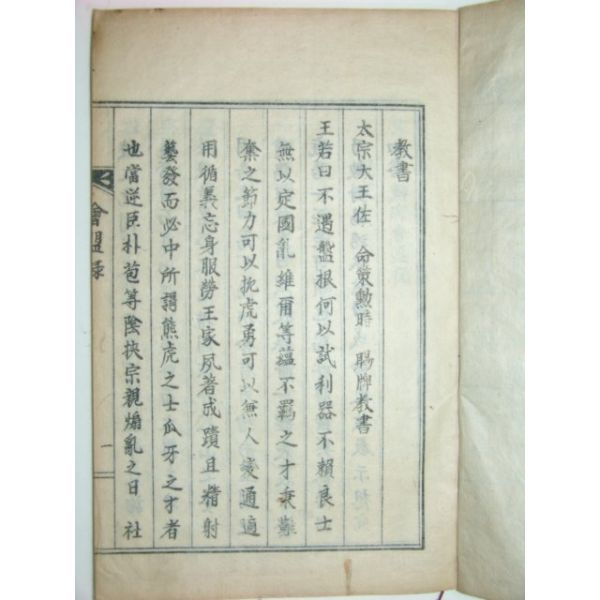 教書
太宗大王佐 命策勲時 賜牌教書
王若曰不遇盤根何以試利器不賴良士
無以定國亂維爾等蘊不羈之才秉難
奪之節力可以扼虎勇可以無人変通適
用循義忘身服勞王家夙著成蹟且精射
藝發而必中所謂熊虎之士瓜牙之才者
也當逆臣朴苞等陰挾宗親煽亂之日 社
會盟录
一